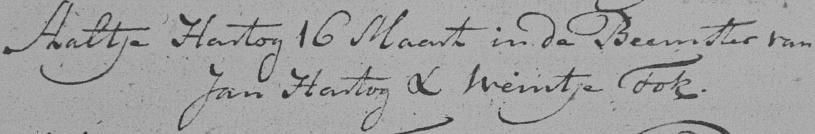 Aaltje Hartog 16 Maart in de Beemster van
Jan Hartog & Weintje Fok.